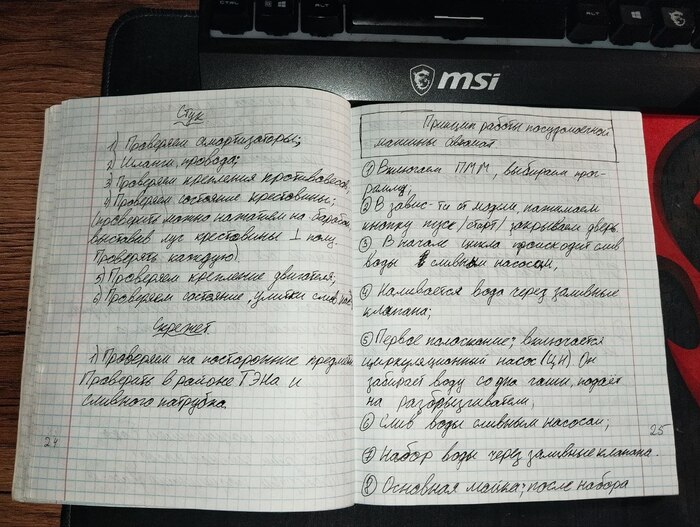 CTRL
ALT
ALT
msi
Стук
1) Проверяем амортизаторы;
2) Шланги, провода;
3) Проверяем крепления противовесов;
4) Проверяем состояние крестовины;
(проверить можно нажатием на барабан
выставив луч крестовины ⊥ полу.
Проверять каждую).
5) Проверяем крепление двигателя;
6) Проверяем состояние, улитки слив.
Скрежет
1) Проверяем на посторонние предметы
Проверить в районе ТЭНа и
сливного патрубка.
24
Принцип работы посудомоечной
машины
① Включаем ПММ, выбираем прог-
рамму,
② В завис-ти от модели, нажимаем
кнопку пуск /старт/ закрываем дверь.
③ В начале цикла происходит слив
воды сливным насосом,
④ Наливается вода через заливные
клапана;
⑤ Первое полоскание; включается
циркуляционный насос (ЦН) Он
забирает воду со дна чаши, подаёт
на разбрызгиватели,
⑥ Слив воды сливным насосом;
25
⑦ Набор воды через заливные клапана.
⑧ Основная мойка; после набора